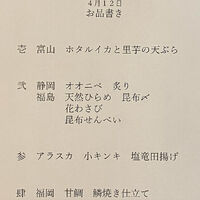 4月12日
お品書き
壱 富山 ホタルイカと里芋の天ぷら
弐 静岡 オオニベ 炙り
福島 天然ひらめ 昆布〆
花わさび
昆布せんべい
参 アラスカ 小キンキ 塩竜田揚げ
肆 福岡 甘鯛 鱗焼き仕立て